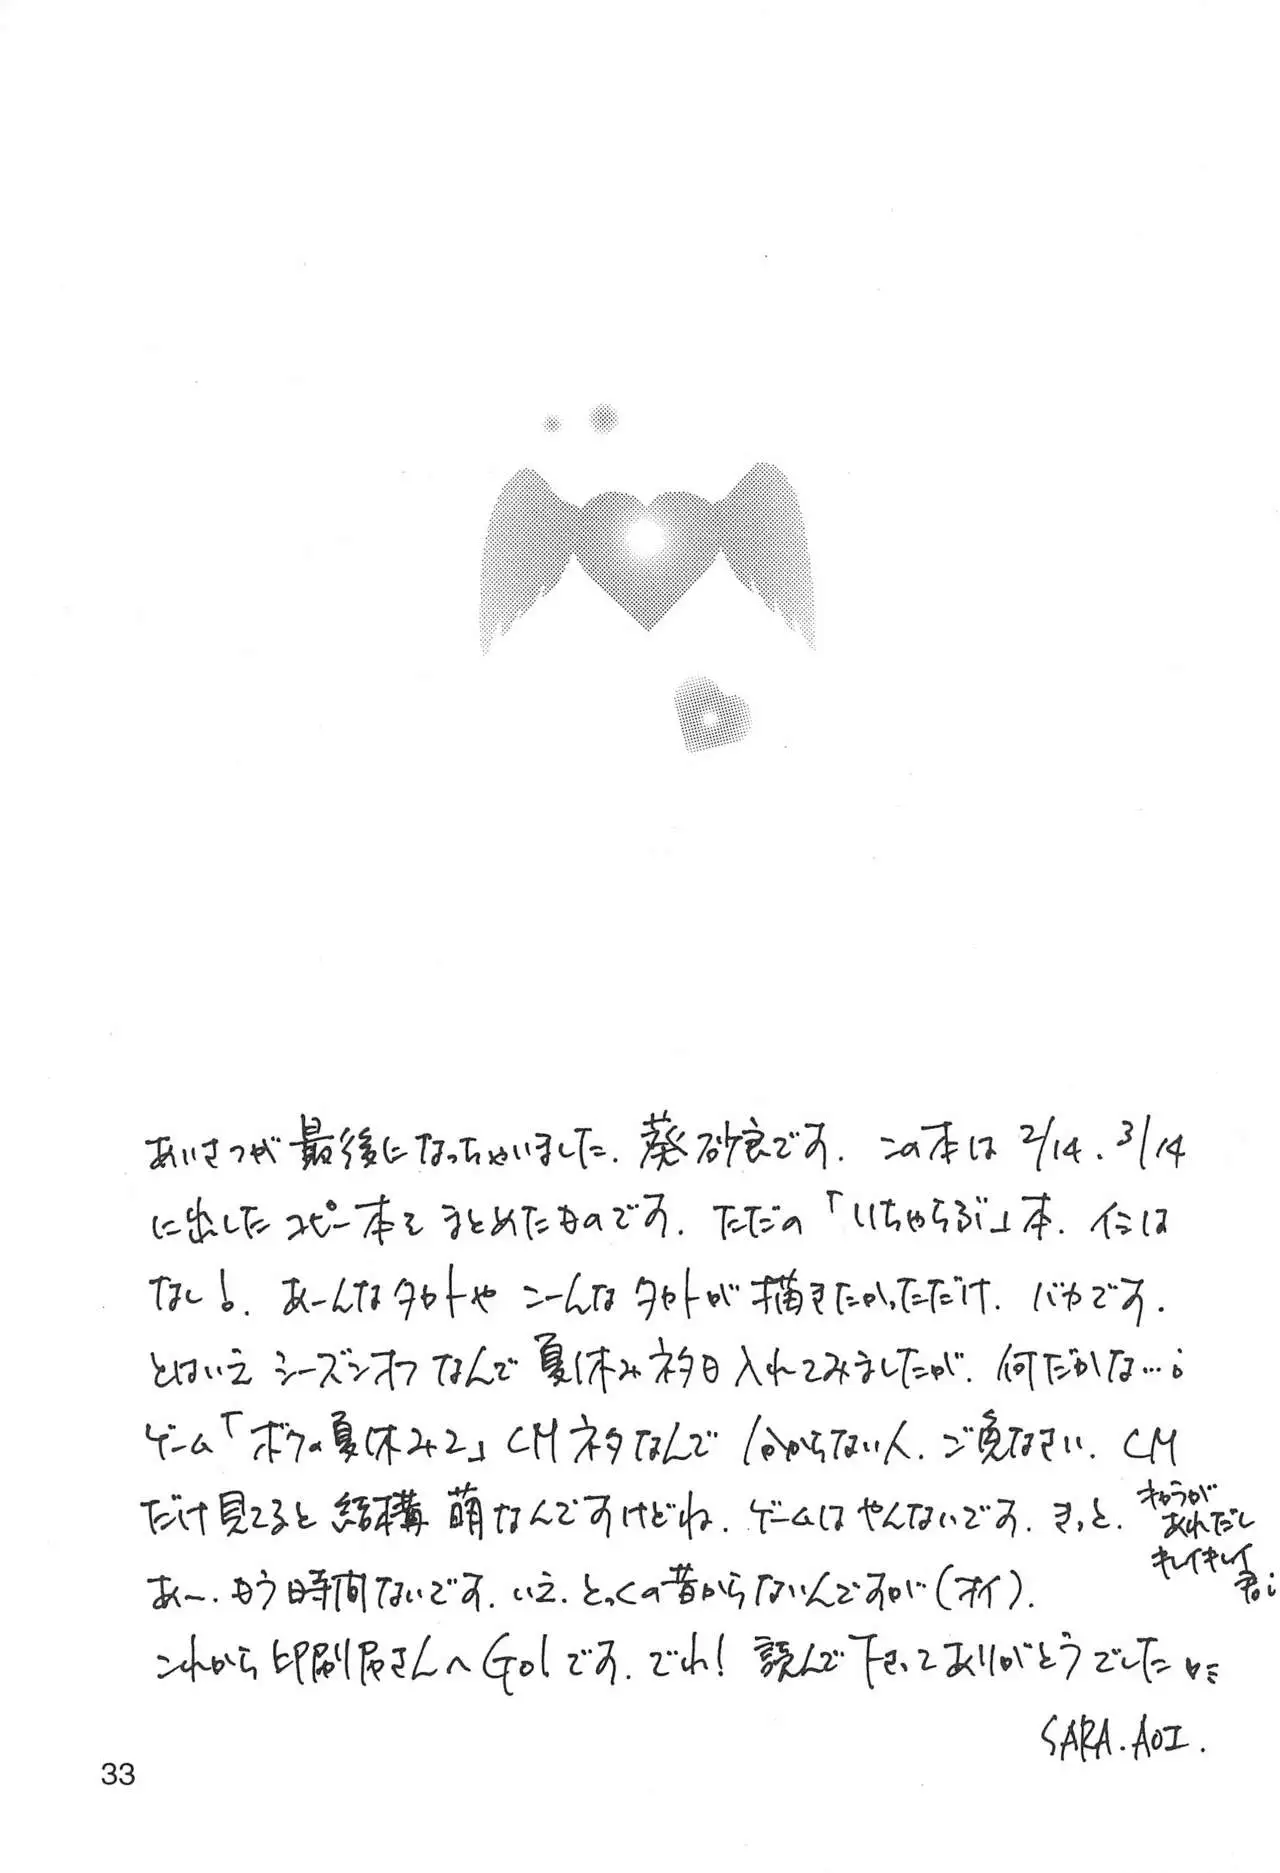 あいさつが最後になっちゃいました. 葵砂良です. この本は 2/14. 3/14
に出したコピー本をまとめたものです. ただの「いちゃらぶ」本. イミは
なし!. あーんなタカトや こーんなタカトが描きたかっただけ. バカです.
とはいえ シーズンオフなんで 夏休みネタ入れてみましたが. 何だかな…;
ゲーム「ボクの夏休み2」CMネタなんで 分からない人. ご免なさい. CM
だけ見てると 結構 萌なんですけどね. ゲームはやんないです. きっと.
あれだし
キレイキレイ
君;
あ〜. もう時間ないです. いえ. とっくの昔からないんですが(オイ).
これから印刷屋さんへGo!です. でわ! 読んで下さってありがとうでした
SARA.AOI.
33